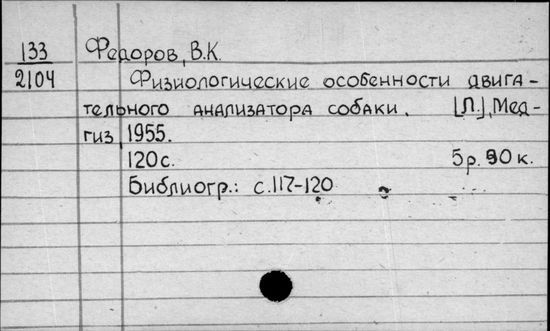 133 Федоров, В.К.
2104 Физиологические особенности двига-
тельного анализатора собаки. [Л.], Мед-
гиз, 1955.
120 с. 5 р. 90 к.
Библиогр.: с. 117-120